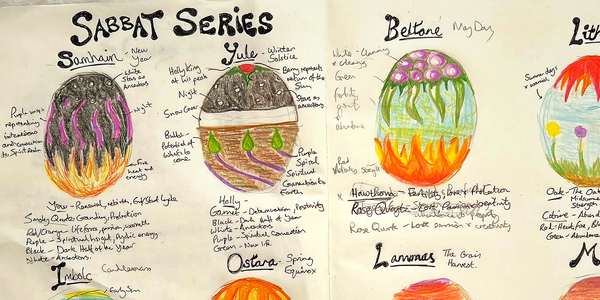 SABBAT SERIES
Samhain - New Year
White Stars as Ancestors
Purple wisps representing intentions and connection to Spirit
Night
Fire heat and energy
Yew - Renewal, rebirth,
Smoky Quartz Grounding, Protection
Red/Orange - Life force, passion, warmth
Purple - Spiritual insight, psychic energy
Black - Dark Half of the Year
White - Ancestors.
Yule - Winter Solstice
Holly King at his peak
Night
Snow Cover
Bulbs - Potential of what's to come
Berry represents return of the Sun
Stars as ancestors
Purple Spiral Spiritual Connection to Earth
Holly
Garnet - Determination, Positivity
Black - Dark half of Year
White - Ancestors
Purple - Spiritual Connection
Green - New Life
Imbolc
Candlemass
Ostara - Spring Equinox
Beltane May Day
White - Cleansing
Green
Fertility
growth
abundance
Red
Hawthorne - Fertility, Love, Protection
Rose Quartz
Rose Quartz - Love passion & creativity
Lammas The Grain Harvest.
Lith
Summer days
warmth
Oak - The Oak
Midsummer
Strength
Citrine - Abun
Green - Abun
M